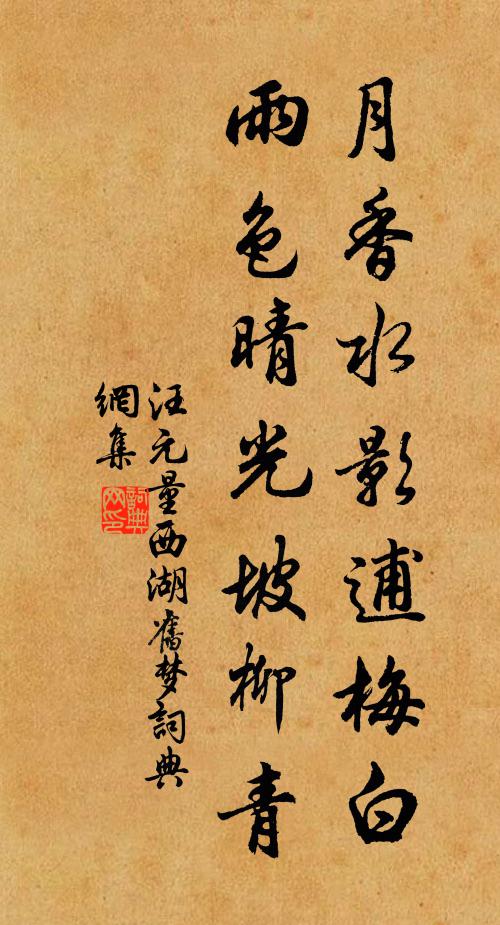 月香水影逋梅白
雨色晴光坡柳青
汪元量西湖舊梦詞典
網集
詞典网印